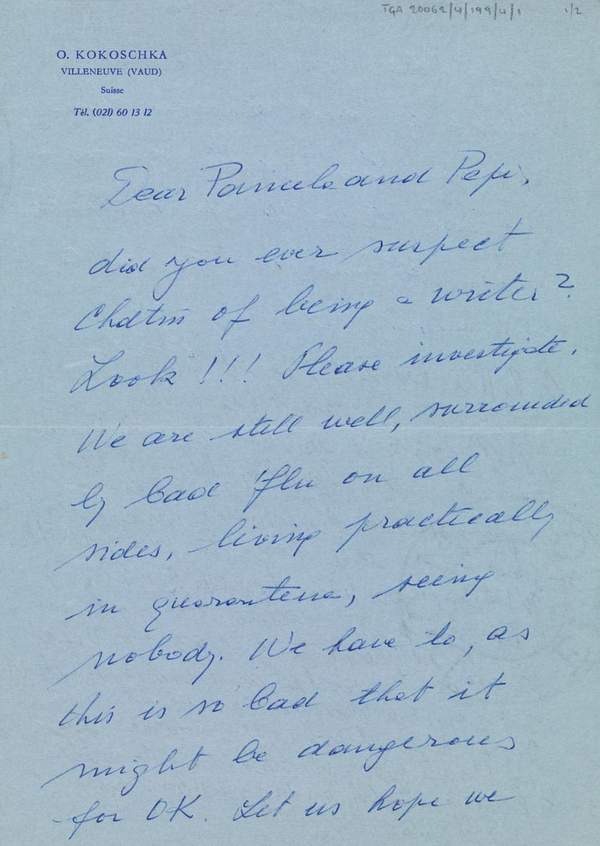 TGA 20062/4/199/4/1 1/2
O. KOKOSCHKA
VILLENEUVE (VAUD)
Suisse
Tél. (021) 60 13 12
Dear Pamela and Pepi,
did you ever suspect
of being a writer?
Look!!! Please investigate.
We are still well, surrounded
by bad 'flu on all
sides, living practically
in quarantena, seeing
nobody. We have to, as
this is so bad that it
might be dangerous
for OK. Let us hope we